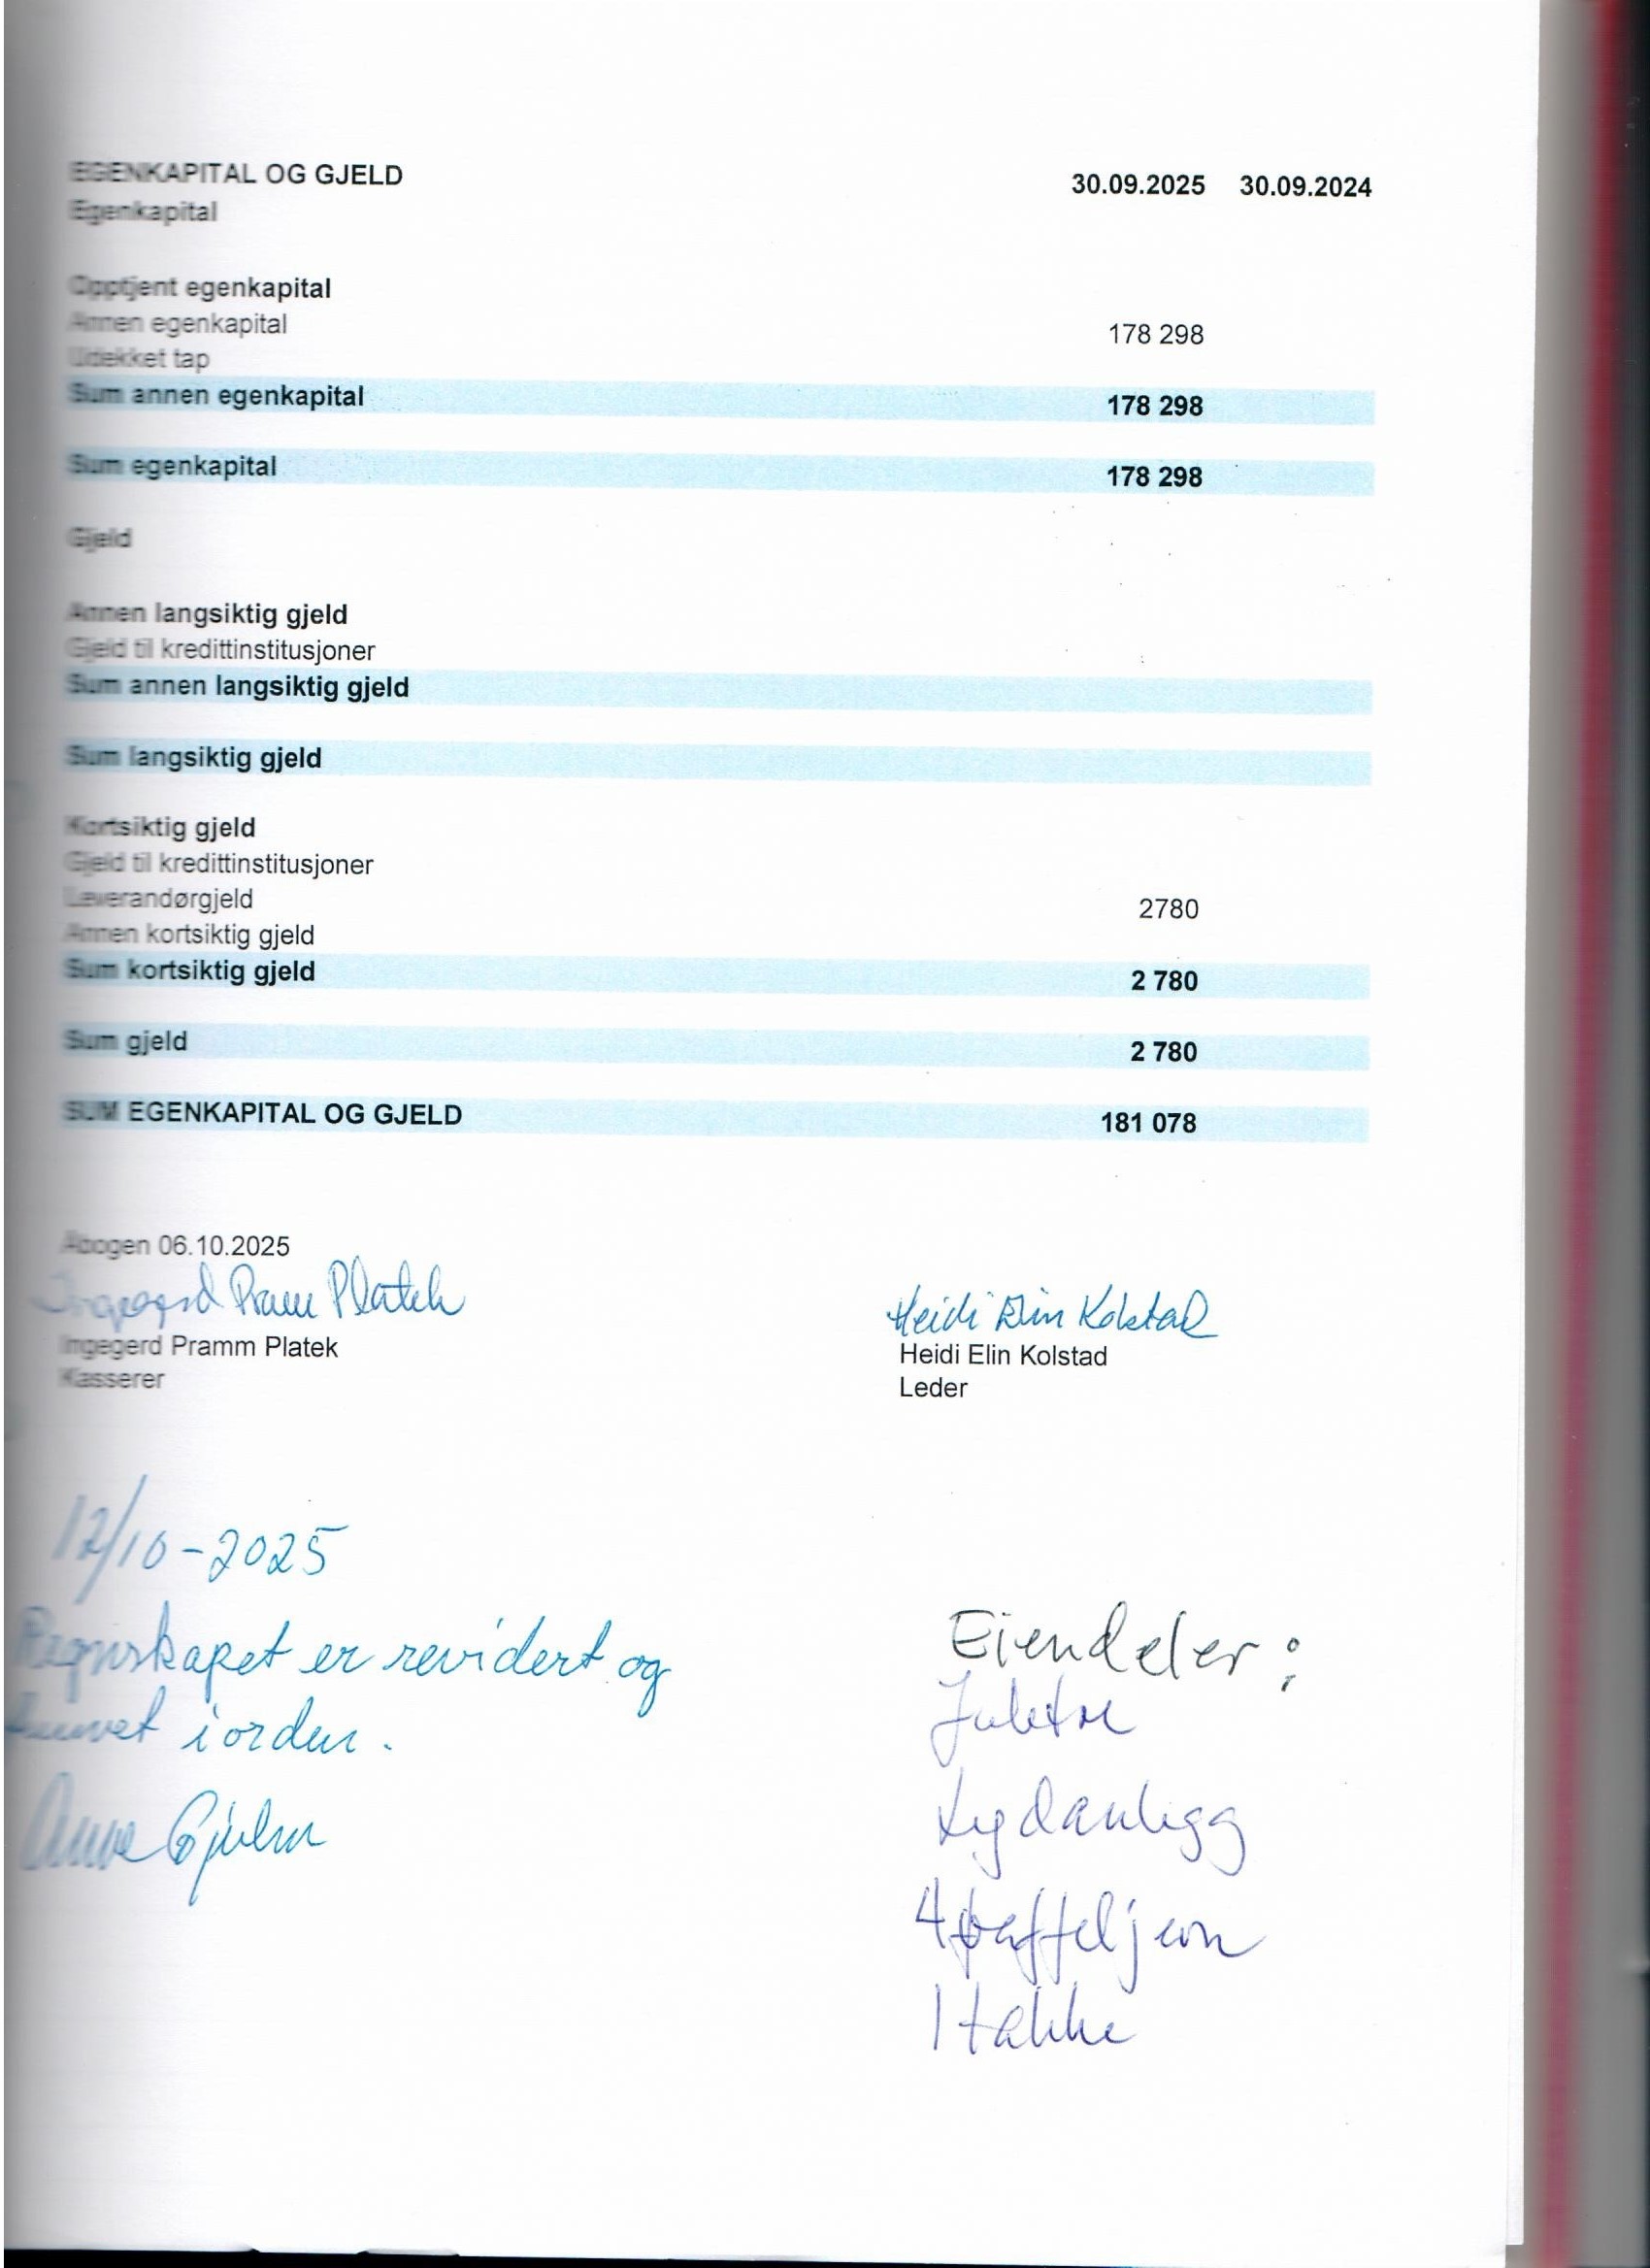 EGENKAPITAL OG GJELD 30.09.2025 30.09.2024
Egenkapital
Opptjent egenkapital
Annen egenkapital 178 298
Udekket tap
Sum annen egenkapital 178 298
Sum egenkapital 178 298
Gjeld
Annen langsiktig gjeld
Gjeld til kredittinstitusjoner
Sum annen langsiktig gjeld
Sum langsiktig gjeld
Kortsiktig gjeld
Gjeld til kredittinstitusjoner
Leverandørgjeld 2780
Annen kortsiktig gjeld
Sum kortsiktig gjeld 2 780
Sum gjeld 2 780
SUM EGENKAPITAL OG GJELD 181 078
Åbogen 06.10.2025
Ingegerd Pramm Platek Heidi Elin Kolstad
Ingegerd Pramm Platek Heidi Elin Kolstad
Kasserer Leder
12/10-2025
Regnskapet er revidert og
funnet i orden.
Anne
Eiendeler:
Juletre
Lydanlegg
4 vaffeljern
1 takke